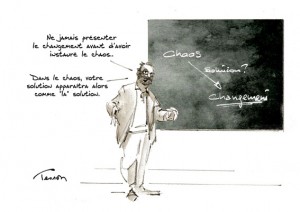 Ne jamais présenter
le changement avant d'avoir
instauré le chaos..
Dans le chaos, votre
solution apparaitra alors
comme "la" solution.
Chaos
solution?
Changement